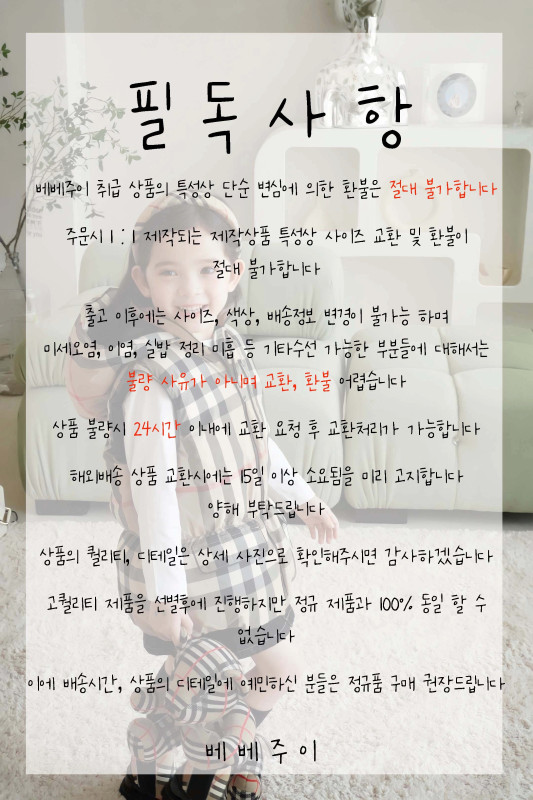 필독사항
베베주이 취급 상품의 특성상 단순 변심에 의한 환불은 절대 불가합니다
주문시 1 : 1 제작되는 제작상품 특성상 사이즈 교환 및 환불이
절대 불가합니다
출고 이후에는 사이즈, 색상, 배송정보 변경이 불가능 하며
미세오염, 이염, 실밥 정리 미흡 등 기타수선 가능한 부분들에 대해서는
불량 사유가 아니며 교환, 환불 어렵습니다
상품 불량시 24시간 이내에 교환 요청 후 교환처리가 가능합니다
해외배송 상품 교환시에는 15일 이상 소요됨을 미리 고지합니다
양해 부탁드립니다
상품의 퀄리티, 디테일은 상세 사진으로 확인해주시면 감사하겠습니다
고퀄리티 제품을 선별후에 진행하지만 정규 제품과 100% 동일 할 수
없습니다
이에 배송시간, 상품의 디테일에 예민하신 분들은 정규품 구매 권장드립니다
베베주이